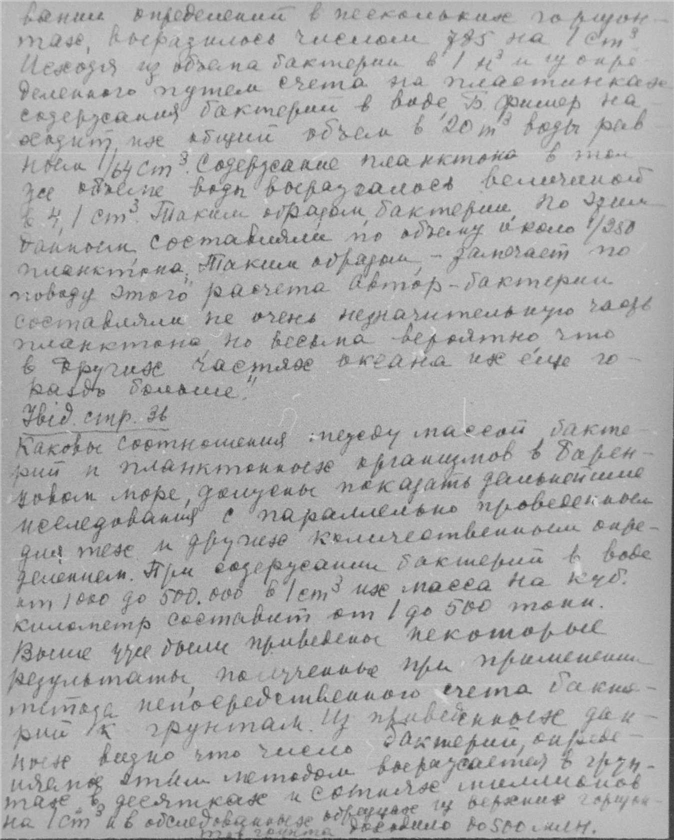 вании определений в нескольких горизон-
тах, выразилось числом 785 на 1 cm³
Исходя из объема бактерии в 1 м³ и из опре-
деленного путем счета на пластинках
содержания бактерий в воде Б. Ример на-
ходит их общий объем в 20 m³ воды рав-
ным 1/64 cm³. Содержание планктона в том
же объеме воды выражалось величиной
в 4,1 cm³. Таким образом, бактерии, по этим
данным, составляли по объему около 1/250
планктона. „Таким образом, – замечает по
поводу этого расчета Автор – бактерии
составляли не очень незначительную часть
планктона но весьма вероятно что
в других частях океана их еще го-
раздо больше."
Ibid. стр. 36
Каковы соотношения между массой бакте-
рий и планктонных организмов в Барен-
цовом море, должны показать дальнейшие
исследования с параллельно проведенным
для тех и других количественным опре-
делением. При содержании бактерий в воде
от 1000 до 500.000 в 1 cm³ их масса на куб.
километр составит от 1 до 500 тонн.
Выше уже были приведены некоторые
результаты полученные при применении
метода непосредственного счета бакте-
рий к грунтам. Из приведенных дан-
ных видно что число бактерий, опреде-
ляемое этим методом выражается в грун-
тах в десятках и сотнях миллионов
на 1 cm³ и в обследованных образцах из верхних горизон-
тов грунта доходило до 500 млн.